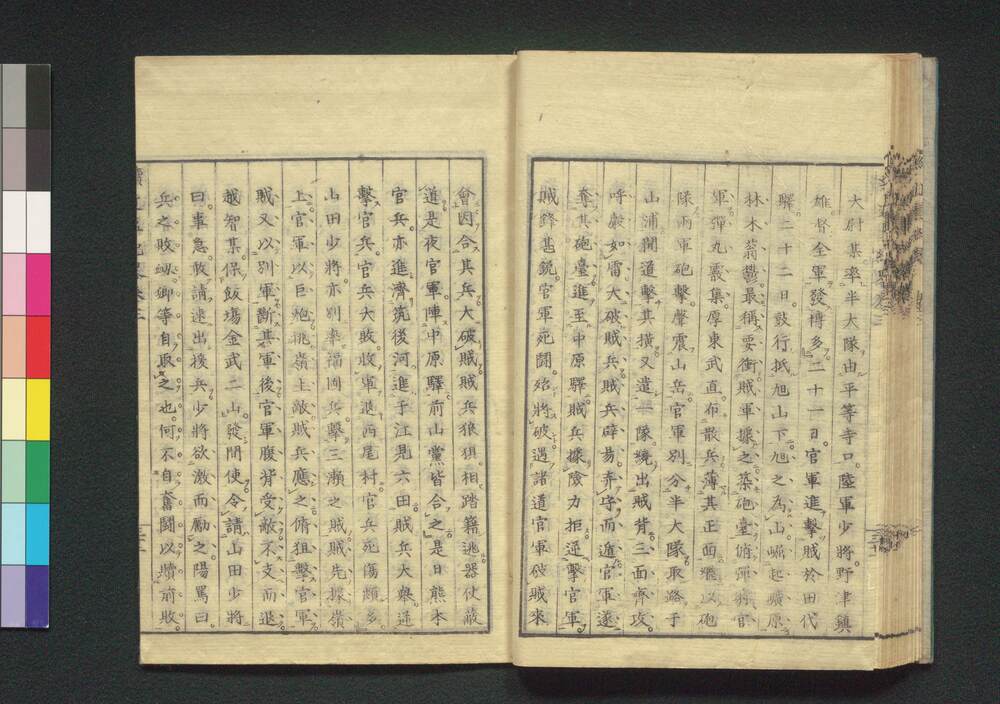 大尉某率半大隊由平等寺口陸軍少將野津鎮
雄督全軍發博多二十一日官軍進擊賊於田代
驛二十二日鼓行抵旭山下旭之為山崛起曠原
林木蓊鬱最稱要衝賊軍據之築砲臺俯彈官
軍彈丸叢集厚東武直布散兵薄其正面繼以砲
隊兩軍砲擊聲震山岳官軍別分半大隊取路于
山浦間道擊其橫又遣一隊繞出賊背三面齊攻
呼嚴如雷大破賊兵賊兵辟易弃守而遁官軍遂
奪其砲臺進至中原驛賊兵據險力拒逆擊官軍
賊鋒甚銳官軍死鬪殆將破遇諸道官軍破賊來
會因合其兵大破賊賊兵狼狽相踏籍逃器仗蔽
道是夜官軍陣中原驛前山黨皆合之是日熊本
官兵亦進濟筑後河進于江見六田賊兵大舉逆
擊官兵官兵大敗收軍退西尾村官兵死傷頗多
山田少將亦別率福岡兵擊三瀬之賊賊先據嶺
上官軍以巨砲挑嶺上敵賊兵應之俯狙擊官軍
賊又以別軍斷其軍後官軍腹背受敵不支而退
越智某保飯塲金武二山發間使令請山田少將
曰事急敢請速出援兵少將欲激而勵之陽罵曰
兵之敗衂卿等自取之也何不自奮鬪以贖前敗